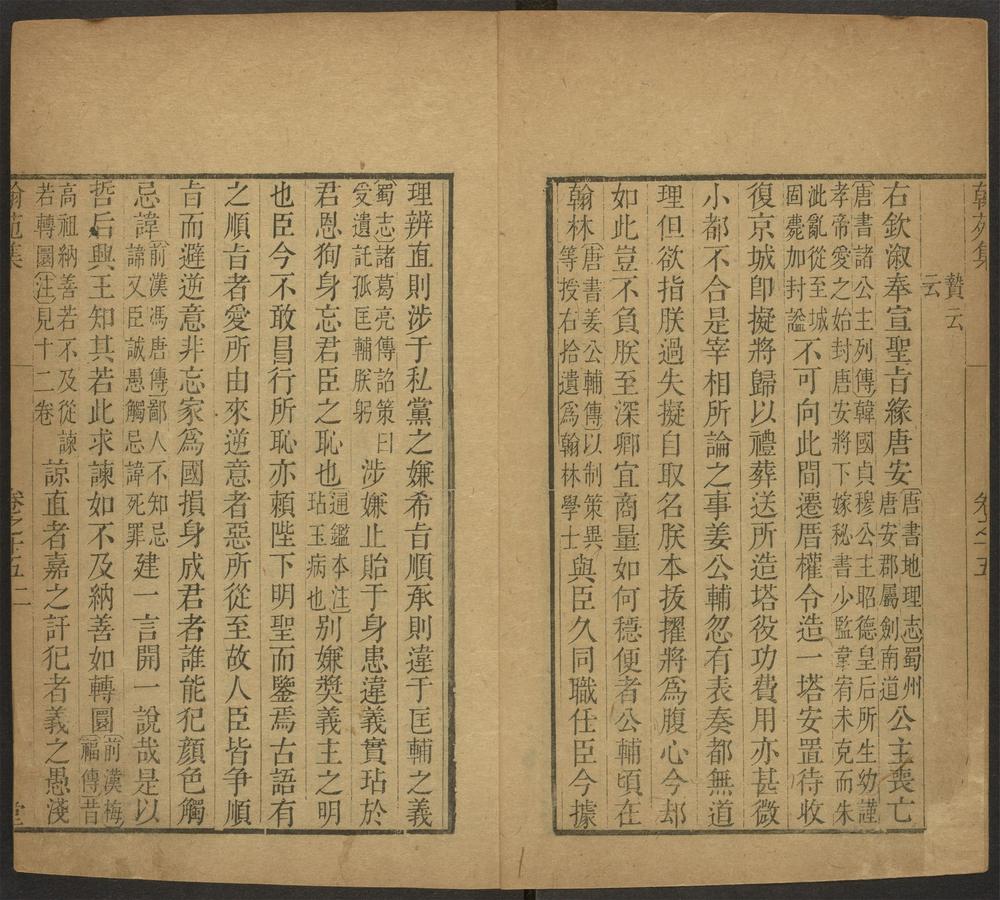 翰苑集　卷之十五
贄云
云
右欽漵奉宣聖旨緣唐安唐書地理志蜀州唐安郡屬劍南道公主喪亡
唐書諸公主列傳韓國貞穆公主昭德皇后所生幼謹孝帝愛之始封唐安將下嫁秘書少監韋宥未克而朱
泚亂從至城固薨加封謚不可向此間遷厝權令造一塔安置待收
復京城即擬將歸以禮葬送所造塔役功費用亦甚微
小都不合是宰相所論之事姜公輔忽有表奏都無道
理但欲指朕過失擬自取名朕本拔擢將爲腹心今却
如此豈不負朕至深卿宜商量如何穩便者公輔頃在
翰林唐書姜公輔傳以制策異等授右拾遺爲翰林學士與臣久同職任臣今據
理辨直則涉于私黨之嫌希旨順承則違于匡輔之義
蜀志諸葛亮傳詔策曰受遺託孤匡輔朕躬涉嫌止貽于身患違義實玷於
君恩徇身忘君臣之恥也通鑑本注玷玉病也別嫌奬義主之明
也臣今不敢昌行所恥亦賴陛下明聖而鑒焉古語有
之順旨者愛所由來逆意者惡所從至故人臣皆爭順
旨而避逆意非忘家爲國損身成君者誰能犯顏色觸
忌諱前漢馮唐傳鄙人不知忌諱又臣誠愚觸忌諱死罪建一言開一說哉是以
哲后興王知其若此求諫如不及納善如轉圜前漢梅福傳昔
高祖納善若不及從諫若轉圜注見十二卷諒直者嘉之訐犯者義之愚淺
翰苑集　卷之十五　二